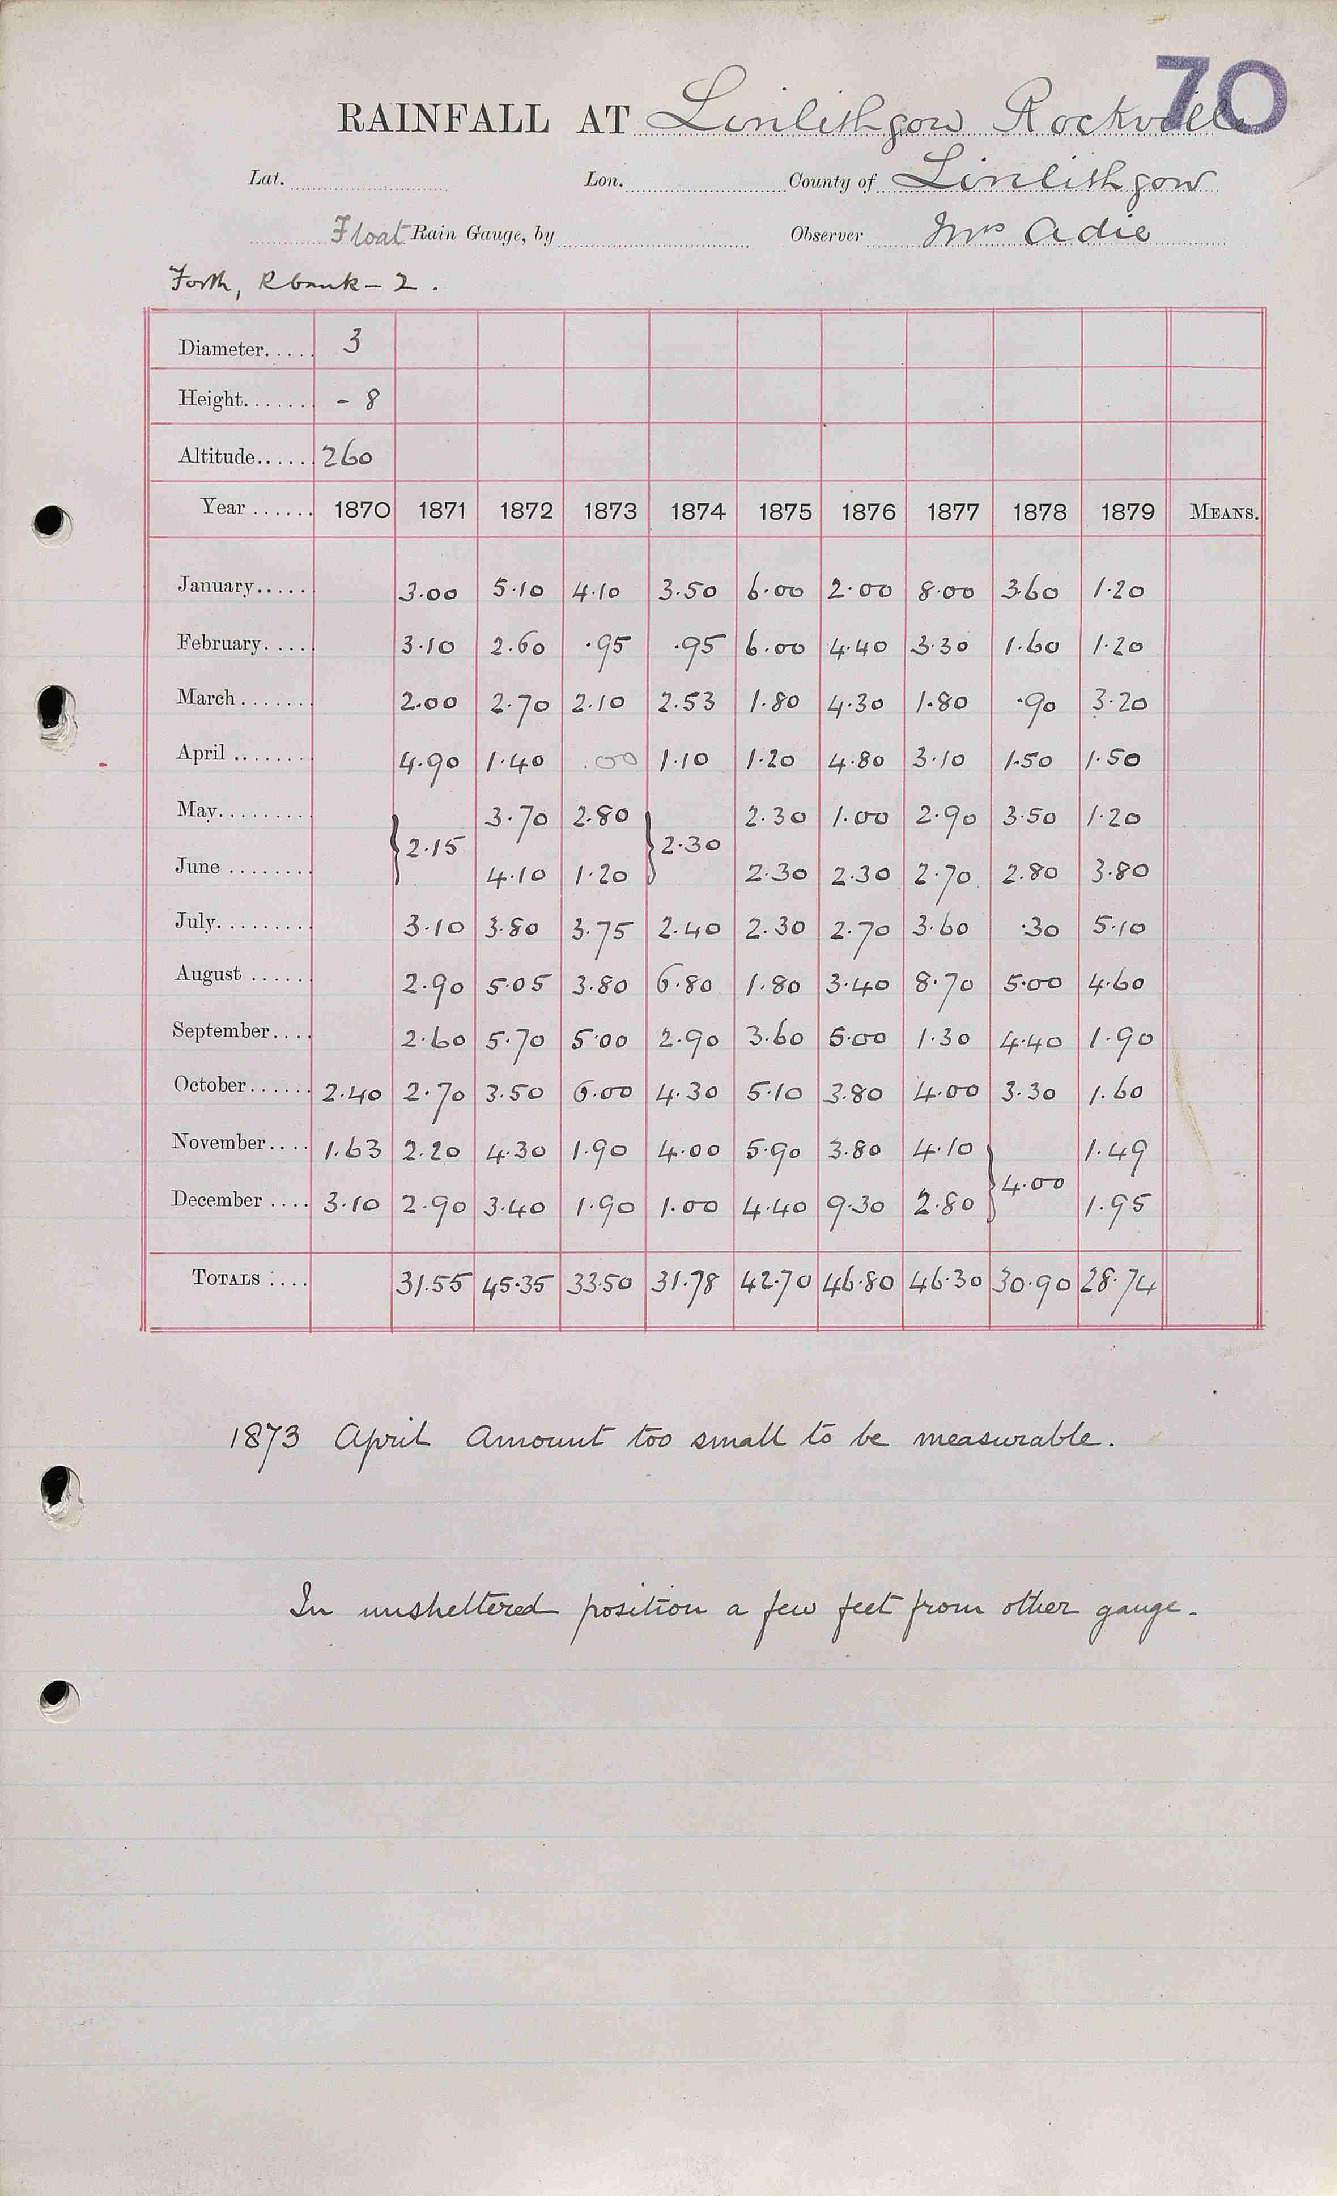 70
RAINFALL AT Linlithgow Rockville
Lat. Lon. County of Linlithgow
Float Rain Gauge, by Observer Mrs Adie
Forth, R bank - 2.
Diameter..... 3
Height...... - 8
Altitude...... 260
Year ...... 1870 1871 1872 1873 1874 1875 1876 1877 1878 1879 MEANS.
January..... 3.00 5.10 4.10 3.50 6.00 2.00 8.00 3.60 1.20
February..... 3.10 2.60 .95 .95 6.00 4.40 3.30 1.60 1.20
March....... 2.00 2.70 2.10 2.53 1.80 4.30 1.80 .90 3.20
April ........ 4.90 1.40 .00 1.10 1.20 4.80 3.10 1.50 1.50
May......... 3.70 2.80 2.30 1.00 2.90 3.50 1.20
} 2.15 } 2.30
June ........ 4.10 1.20 2.30 2.30 2.70 2.80 3.80
July......... 3.10 3.80 3.75 2.40 2.30 2.70 3.60 .30 5.10
August ...... 2.90 5.05 3.80 6.80 1.80 3.40 8.70 5.00 4.60
September.... 2.60 5.70 5.00 2.90 3.60 5.00 1.30 4.40 1.90
October...... 2.40 2.70 3.50 6.00 4.30 5.10 3.80 4.00 3.30 1.60
November.... 1.63 2.20 4.30 1.90 4.00 5.90 3.80 4.10 1.49
} 4.00
December .... 3.10 2.90 3.40 1.90 1.00 4.40 9.30 2.80 1.95
TOTALS .... 31.55 45.35 33.50 31.78 42.70 46.80 46.30 30.90 28.74
1873 April Amount too small to be measurable.
In unsheltered position a few feet from other gauge.